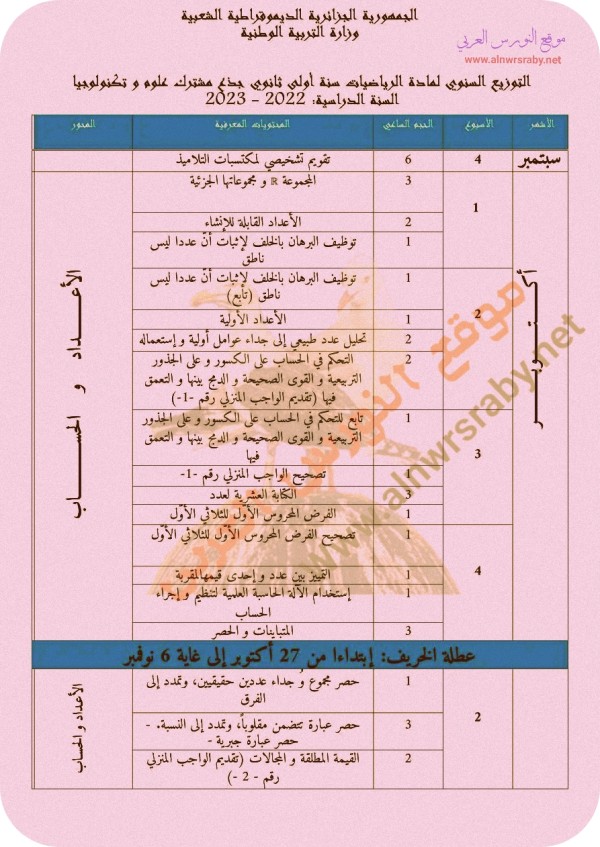 الجمهورية الجزائرية الديموقراطية الشعبية
وزارة التربية الوطنية
موقع النورس العربي
www.alnwrsraby.net
التوزيع السنوي لمادة الرياضيات سنة أولى ثانوي جذع مشترك علوم و تكنولوجيا
السنة الدراسية: 2022 - 2023
الأشهر الأسبوع الحجم الساعي المحتويات المعرفية المحور
سبتمبر 4 6 تقويم تشخيصي لمكتسبات التلاميذ
أكتوبر 1 3 المجموعة ℝ و مجموعاتها الجزئية الأعداد و الحساب
2 الأعداد القابلة للإنشاء
1 توظيف البرهان بالخلف لإثبات أنّ عددا ليس
ناطق
2 1 توظيف البرهان بالخلف لإثبات أنّ عددا ليس
ناطق (تابع)
1 الأعداد الأولية
2 تحليل عدد طبيعي إلى جداء عوامل أولية و إستعماله
2 التحكم في الحساب على الكسور و على الجذور
التربيعية و القوى الصحيحة و الدمج بينها و التعمق
فيها (تقديم الواجب المنزلي رقم -1-)
3 1 تابع للتحكم في الحساب على الكسور و على الجذور
التربيعية و القوى الصحيحة و الدمج بينها و التعمق
فيها
1 تصحيح الواجب المنزلي رقم -1-
3 الكتابة العشرية لعدد
1 الفرض المحروس الأول للثلاثي الأوّل
4 1 تصحيح الفرض المحروس الأول للثلاثي الأوّل
1 التمييز بين عدد و إحدى قيمهالمقربة
1 إستخدام الآلة الحاسبة العلمية لتنظيم و إجراء
الحساب
3 المتباينات و الحصر
عطلة الخريف: إبتداءا من 27 أكتوبر إلى غاية 6 نوفمبر
2 1 حصر مجموع و جداء عددين حقيقيين، وتمدد إلى الأعداد و الحساب
الفرق
3 حصر عبارة تتضمن مقلوباً، وتمدد إلى النسبة. -
حصر عبارة جبرية -
2 القيمة المطلقة و المجالات (تقديم الواجب المنزلي
رقم - 2 -)
موقع النورس العربي
www.alnwrsraby.net